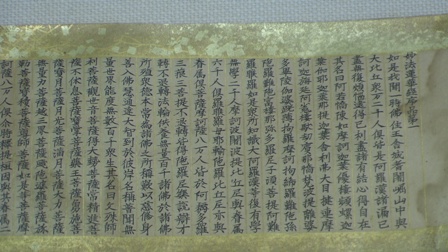 妙法蓮華經序品第一
如是我聞一時佛住王舍城耆闍崛山中與
大比丘衆万二千人俱皆是阿羅漢諸漏已
盡無復煩惱逮得己利盡諸有結心得自在
其名曰阿若憍陳如摩訶迦葉優樓頻螺迦
葉伽耶迦葉那提迦葉舍利弗大目揵連摩
訶迦旃延阿㝹樓馱劫賓那憍梵波提離婆
多畢陵伽婆蹉薄拘羅摩訶拘絺羅難陀孫
陀羅難陀富樓那彌多羅尼子須菩提阿難
羅睺羅如是衆所知識大阿羅漢等復有學
無學二千人摩訶波闍波提比丘尼與眷属
六千人俱羅睺羅母耶輸陀羅比丘尼亦與
眷属俱菩薩摩訶薩八万人皆於阿耨多羅
三藐三菩提不退轉皆得陀羅尼樂說辯才
轉不退轉法輪供養無量百千諸佛於諸佛
所殖衆德本常爲諸佛之所稱歎以慈修身
善入佛慧通達大智到於彼岸名稱普聞無
量世界能度無數百千衆生其名曰文殊師
利菩薩觀世音菩薩得大勢菩薩常精進菩
薩不休息菩薩寶掌菩薩藥王菩薩勇施菩
薩寶月菩薩月光菩薩滿月菩薩大力菩薩
無量力菩薩越三界菩薩跋陀婆羅菩薩彌
勒菩薩寶積菩薩導師菩薩如是等菩薩摩
訶薩八万人俱尒時釋提桓因與其眷属二